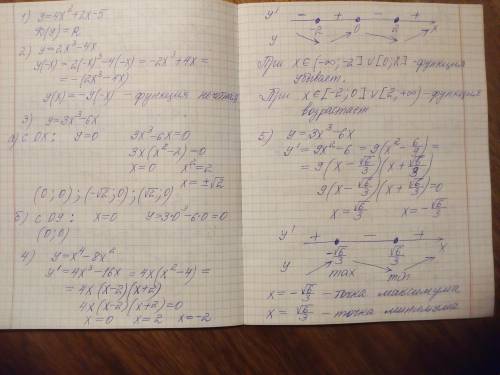 1) y=4x²+2x-5
D(y)=R.
2) y=2x³-4x
y(-x)=2(-x)³-4(-x)=-2x³+4x=
=-(2x³-4x)
y(x)=-y(-x) - функция нечётная
3) y=3x³-6x
а) с OX: y=0 3x³-6x=0
3x(x²-2)=0
x=0 x²=2
x=±√2
(0;0);(-√2;0);(√2;0)
б) с OY: x=0 y=3·0³-6·0=0
(0;0)
4) y=x⁴-8x²
y'=4x³-16x=4x(x²-4)=
=4x(x-2)(x+2)
4x(x-2)(x+2)=0
x=0 x=2 x=-2
y' - + - +
-2 0 2 x
y
При x∈(-∞;-2]∪[0;2] -функция
убывает.
При x∈[-2;0]∪[2;+∞) -функция
возрастает
5) y=3x³-6x
y'=9x²-6=9(x²-6/9)=
=9(x-√6/3)(x+√6/3)
9(x-√6/3)(x+√6/3)=0
x=√6/3 x=-√6/3
y' + - +
-√6/3 √6/3 x
y max min
x=-√6/3 - точка максимума
x=√6/3 - точка минимума